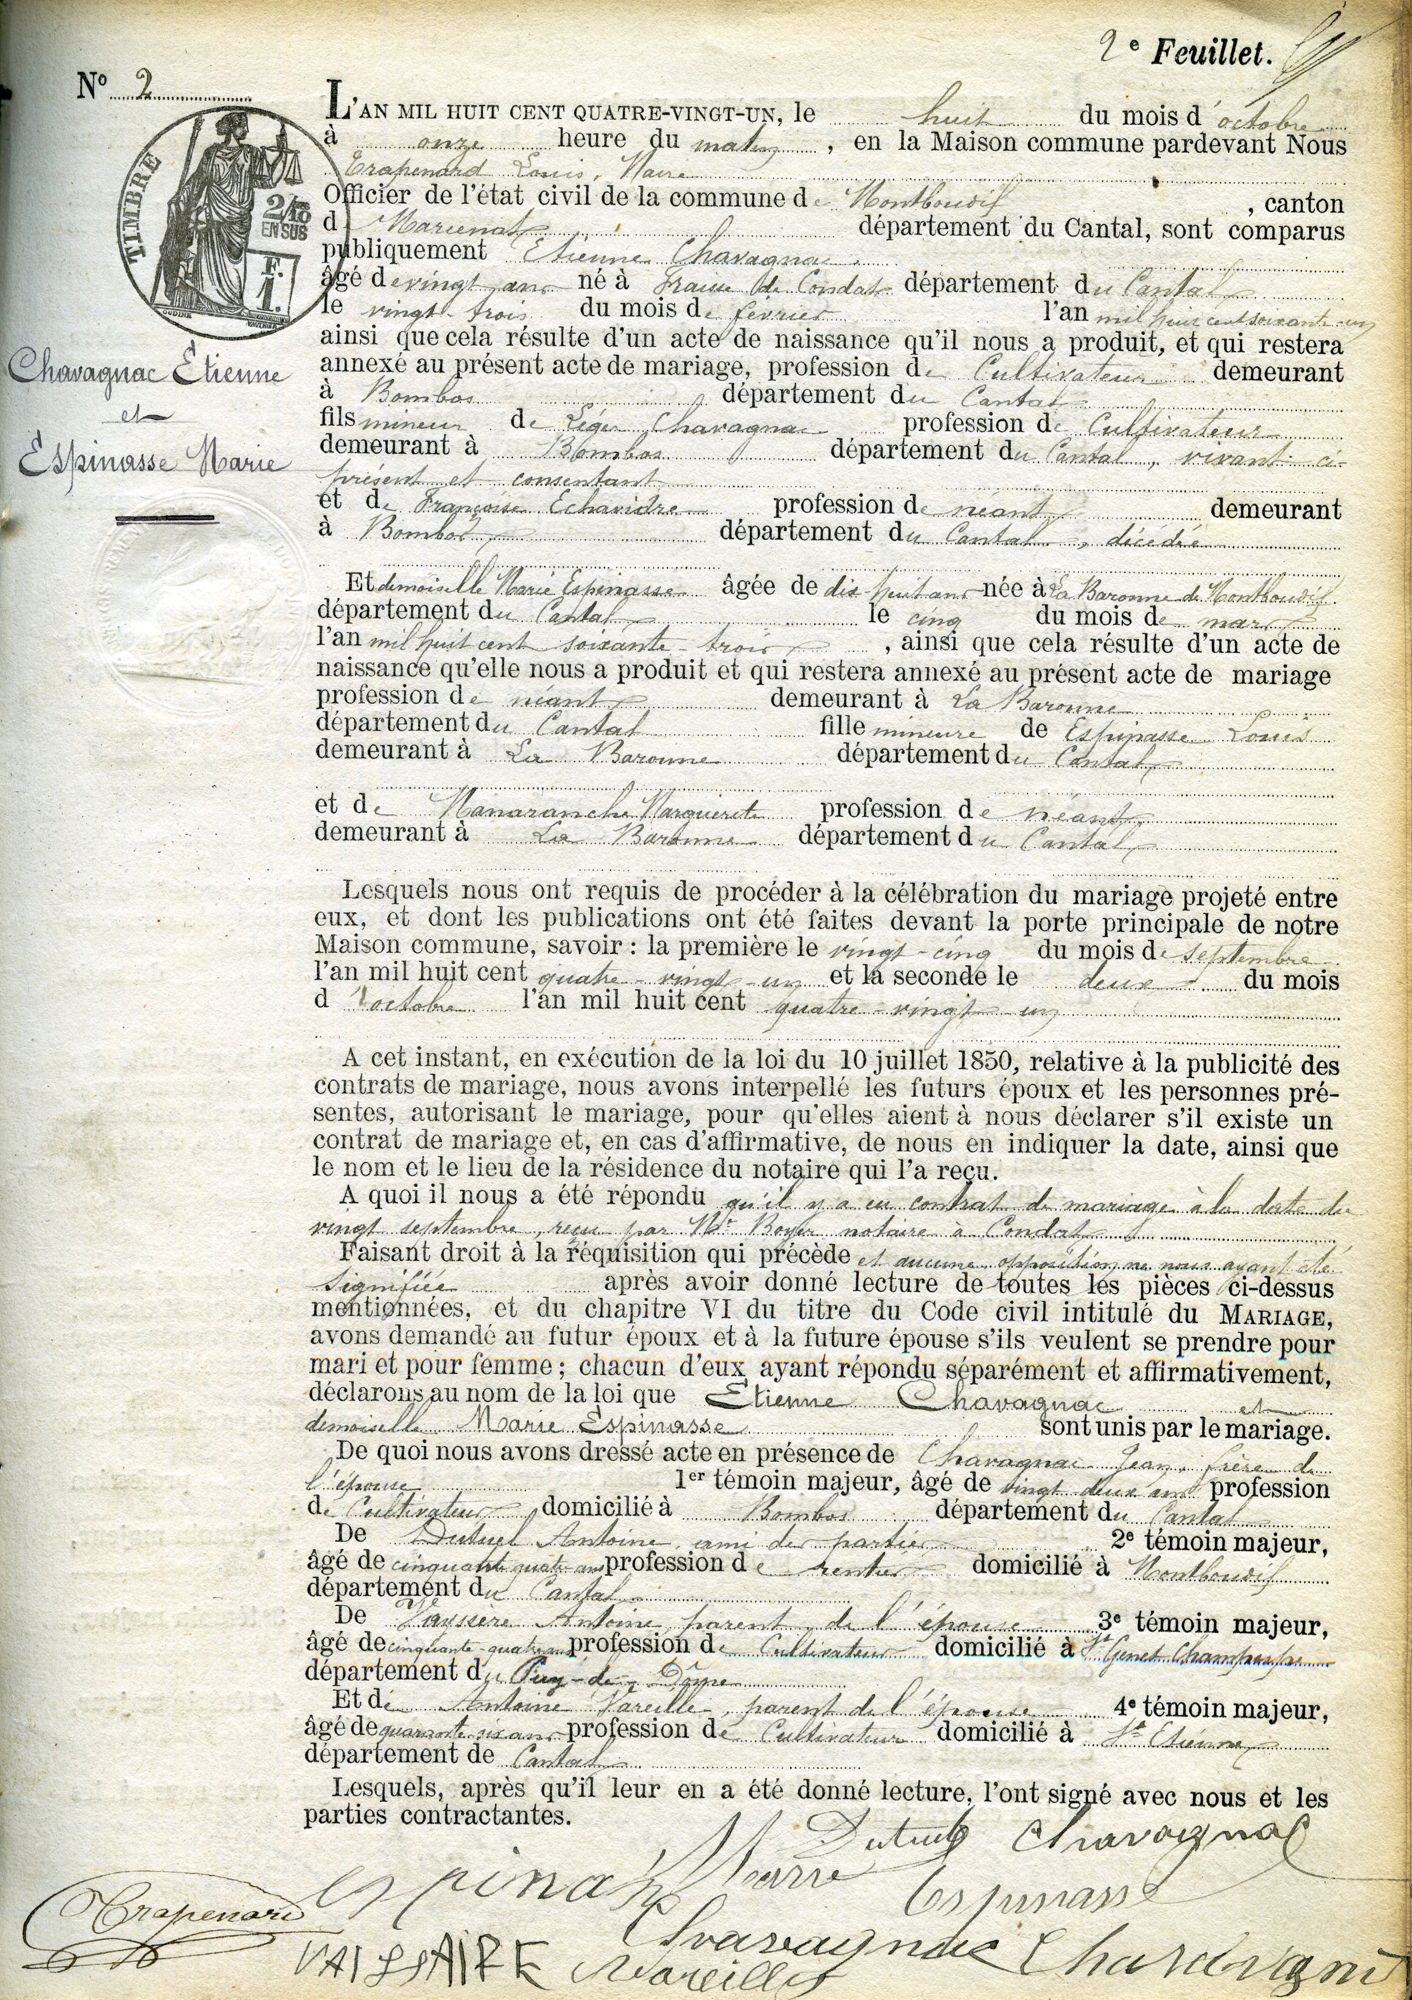 2e Feuillet.
No 2
TIMBRE
2/10
EN SUS
F.
1.
OUDINÉ
Chavagnac Etienne
et
Espinasse Marie
L'AN MIL HUIT CENT QUATRE-VINGT-UN, le huit du mois d'octobre
à onze heure du matin, en la Maison commune pardevant Nous
Trapenard Louis, Maire
Officier de l'état civil de la commune de Montboudif, canton
d Marcenat département du Cantal, sont comparus
publiquement Etienne Chavagnac
âgé de vingt ans né à de Condat département du Cantal
le vingt-trois du mois de février l'an mil huit cent soixante-un
ainsi que cela résulte d'un acte de naissance qu'il nous a produit, et qui restera
annexé au présent acte de mariage, profession de Cultivateur demeurant
à Bombos département du Cantal
fils mineur de Léger Chavagnac profession de Cultivateur
demeurant à Bombos département du Cantal, vivant ci-
présent et consentant
et de Françoise Echavidre profession de néant demeurant
à Bombos département du Cantal, décédée
Et demoiselle Marie Espinasse âgée de dix-huit ans née à La Baronne de Montboudif
département du Cantal le cinq du mois de mars
l'an mil huit cent soixante-trois, ainsi que cela résulte d'un acte de
naissance qu'elle nous a produit et qui restera annexé au présent acte de mariage
profession de néant demeurant à La Baronne
département du Cantal fille mineure de Espinasse Louis
demeurant à La Baronne département du Cantal
et de Manaranche Marguerite profession de néant
demeurant à La Baronne département du Cantal
Lesquels nous ont requis de procéder à la célébration du mariage projeté entre
eux, et dont les publications ont été faites devant la porte principale de notre
Maison commune, savoir : la première le vingt-cinq du mois de septembre
l'an mil huit cent quatre-vingt-un et la seconde le deux du mois
d'octobre l'an mil huit cent quatre-vingt-un
A cet instant, en exécution de la loi du 10 juillet 1850, relative à la publicité des
contrats de mariage, nous avons interpellé les futurs époux et les personnes pré-
sentes, autorisant le mariage, pour qu'elles aient à nous déclarer s'il existe un
contrat de mariage et, en cas d'affirmative, de nous en indiquer la date, ainsi que
le nom et le lieu de la résidence du notaire qui l'a reçu.
A quoi il nous a été répondu qu'il y a eu contrat de mariage à la date du
vingt septembre, reçu par Mr Boyer notaire à Condat
Faisant droit à la réquisition qui précède et aucune opposition ne nous ayant été
signifiée après avoir donné lecture de toutes les pièces ci-dessus
mentionnées, et du chapitre VI du titre du Code civil intitulé du MARIAGE,
avons demandé au futur époux et à la future épouse s'ils veulent se prendre pour
mari et pour femme ; chacun d'eux ayant répondu séparément et affirmativement,
déclarons au nom de la loi que Etienne Chavagnac et
demoiselle Marie Espinasse sont unis par le mariage.
De quoi nous avons dressé acte en présence de Chavagnac Jean, frère de
l'épouse 1er témoin majeur, âgé de vingt deux ans profession
de Cultivateur domicilié à Bombos département du Cantal
De Dutuel Antoine, ami des parties 2e témoin majeur,
âgé de cinquante quatre ans profession de rentier domicilié à Montboudif
département du Cantal
De Vaissère Antoine, parent de l'épouse 3e témoin majeur,
âgé de cinquante-quatre ans profession de Cultivateur domicilié à St Genet Champespe
département du Puy-de-Dôme
Et de Antoine Vareille, parent de l'épouse 4e témoin majeur,
âgé de quarante six ans profession de Cultivateur domicilié à St Etienne
département de Cantal
Lesquels, après qu'il leur en a été donné lecture, l'ont signé avec nous et les
parties contractantes.
Dutuel Chavagnac
Espinasse
Trapenard
Chavagnac
VAISSAIRE Vareille